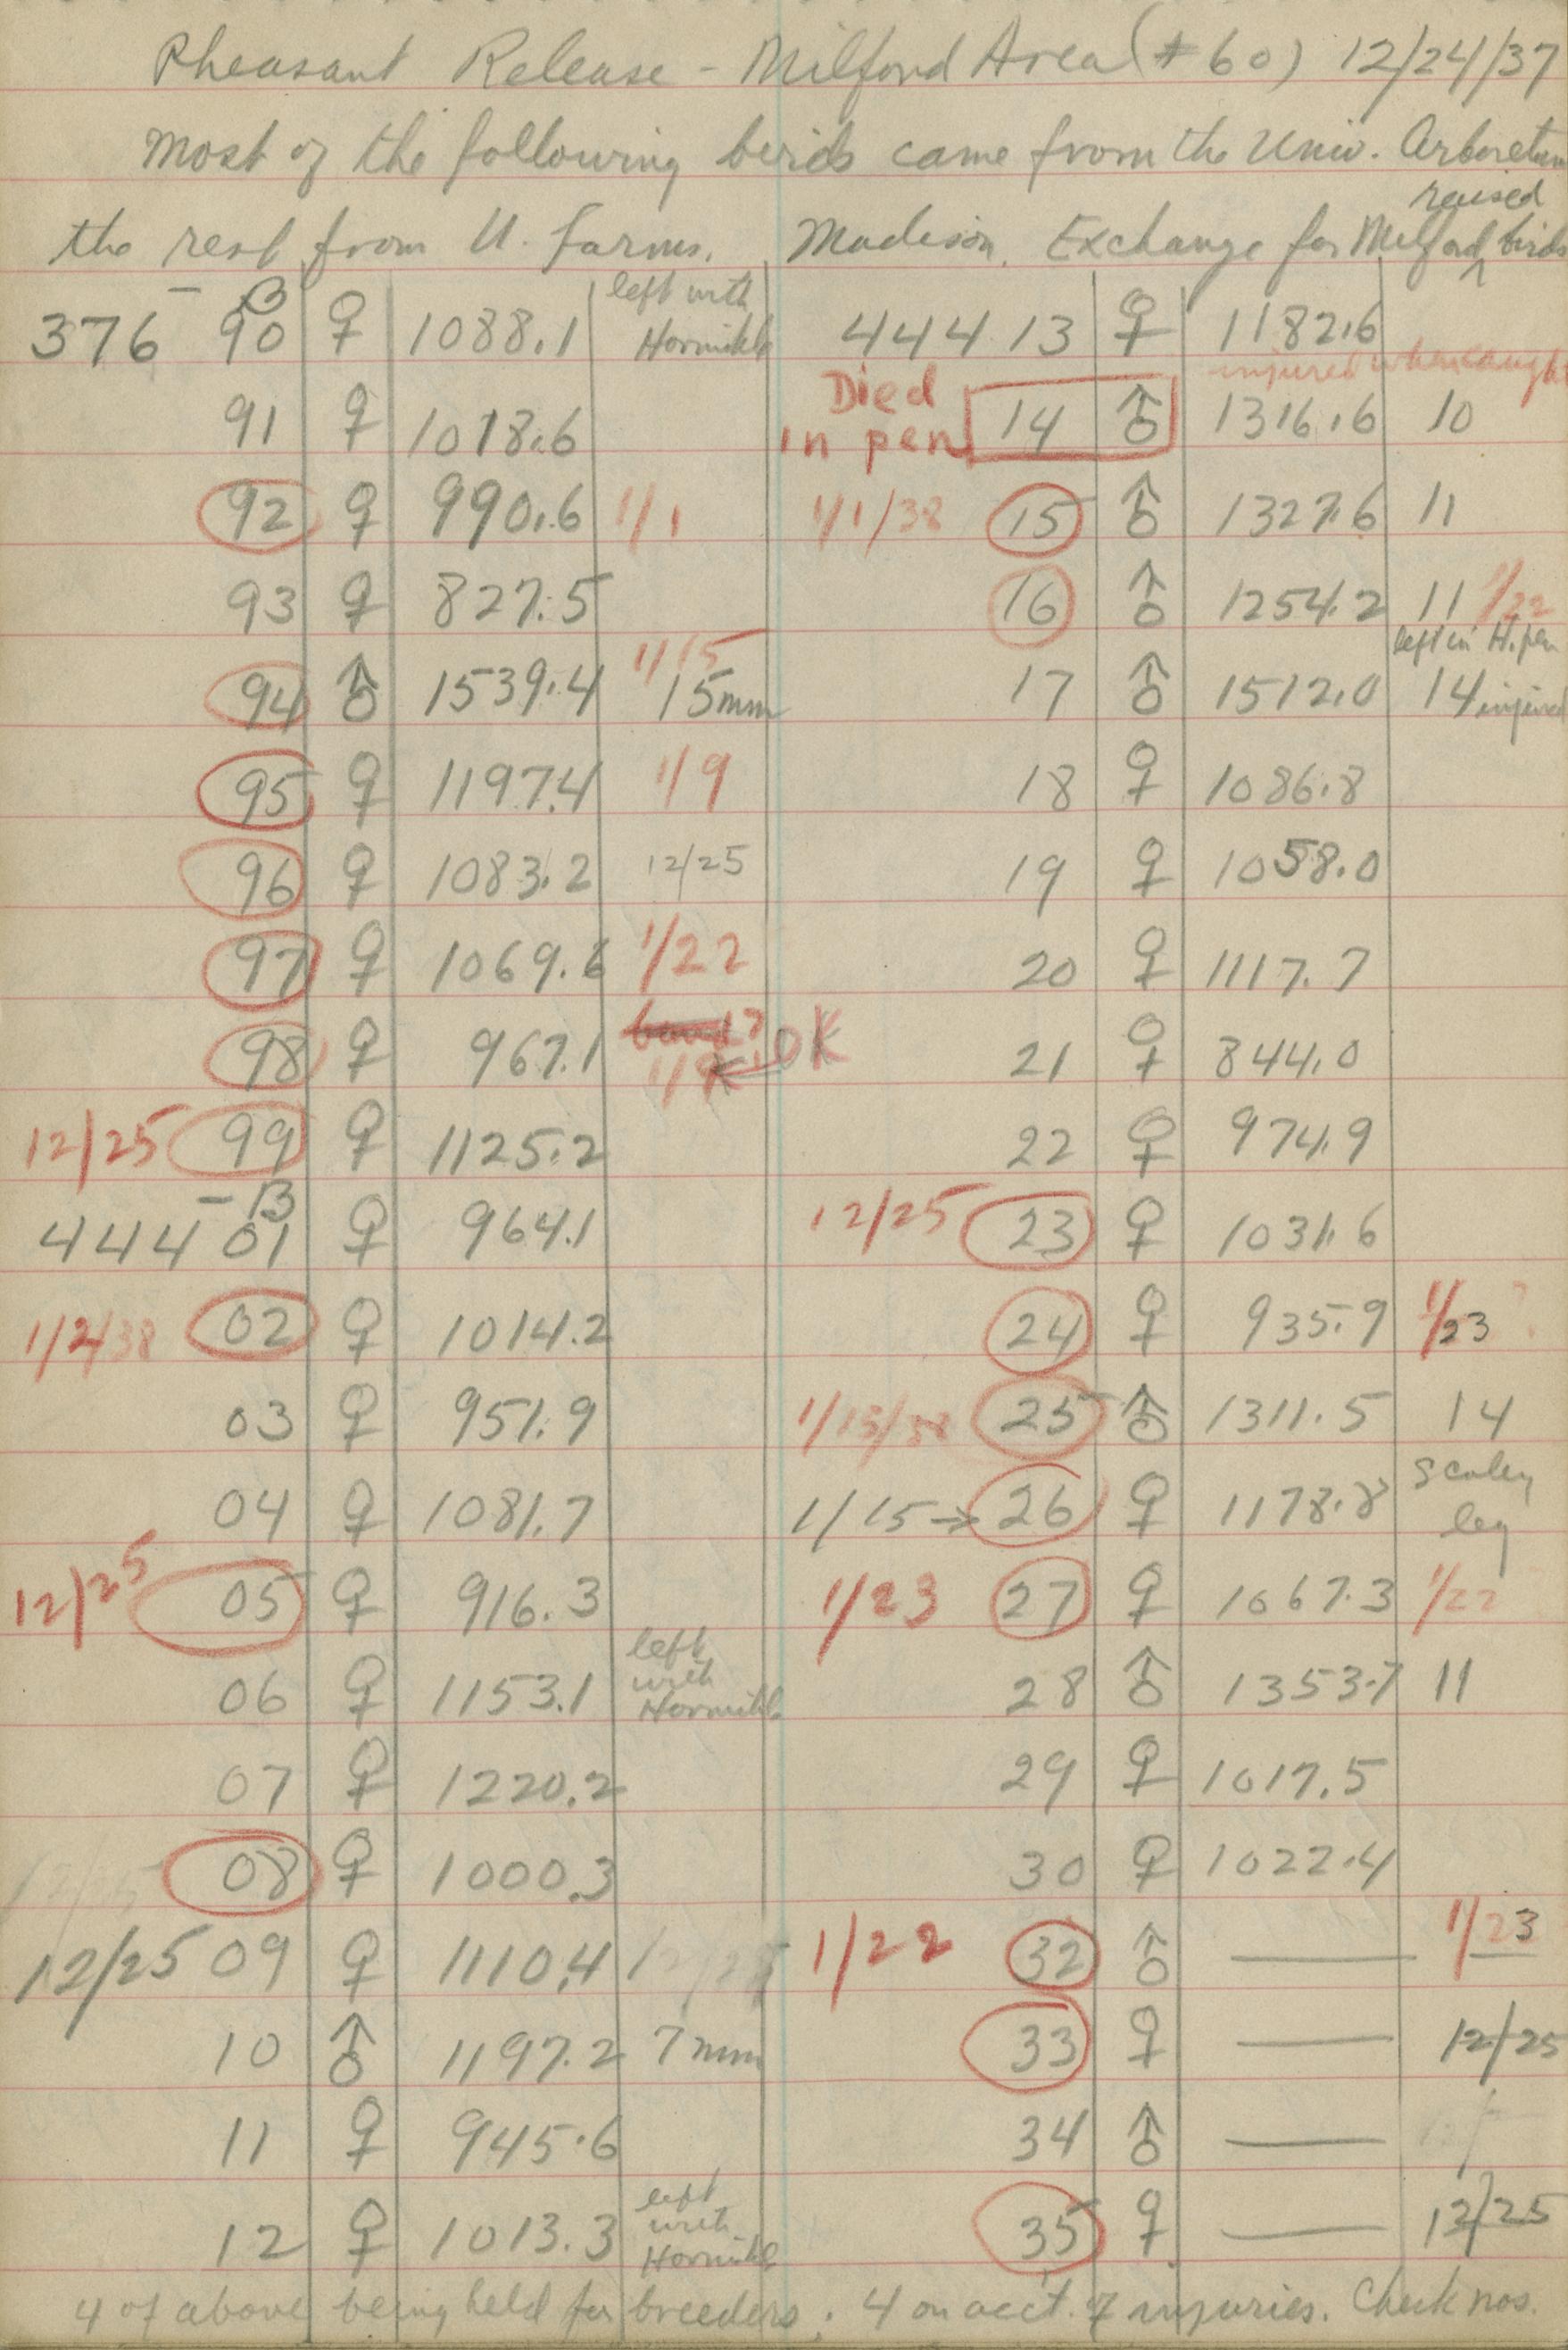 Pheasant Release - Milford Area (#60) 12/24/37
Most of the following birds came from the Univ. Arboretum
the rest from U. Farms, Madison. Exchange for Milford raised birds
376 - B 90 ♀ 1088.1 left with
91 ♀ 1018.6
92 ♀ 990.6 1/1
93 ♀ 827.5
94 ♂ 1539.4 1/15 15mm
95 ♀ 1197.4 1/9
96 ♀ 1083.2 12/25
97 ♀ 1069.6 1/22
98 ♀ 967.1 band? 1/9 OK
12/25 99 ♀ 1125.2
444 - B 01 ♀ 964.1
1/2/38 02 ♀ 1014.2
03 ♀ 951.9
04 ♀ 1081.7
12/25 05 ♀ 916.3
06 ♀ 1153.1 left with
07 ♀ 1220.2
12/25 08 ♀ 1000.3
12/25 09 ♀ 1110.4 12/25
10 ♂ 1197.2 7mm
11 ♀ 945.6
12 ♀ 1013.3 left with
444 13 ♀ 1182.6
Died in pen 14 ♂ 1316.6 10 injured when caught
1/1/38 15 ♂ 1327.6 11
16 ♂ 1254.2 11 1/22
17 ♂ 1512.0 14 left in H. pen injured
18 ♀ 1086.8
19 ♀ 1058.0
20 ♀ 1117.7
21 ♀ 844.0
22 ♀ 974.9
12/25 23 ♀ 1031.6
24 ♀ 935.9 1/23 ?
1/15/38 25 ♂ 1311.5 14
1/15 → 26 ♀ 1178.8 scaley leg
1/23 27 ♀ 1067.3 1/22
28 ♂ 1353.7 11
29 ♀ 1017.5
30 ♀ 1022.4
1/22 32 ♂ — 1/23
33 ♀ — 12/25
34 ♂ —
35 ♀ — 12/25
4 of above being held for breeders. 4 on acc't. of injuries. Check nos.